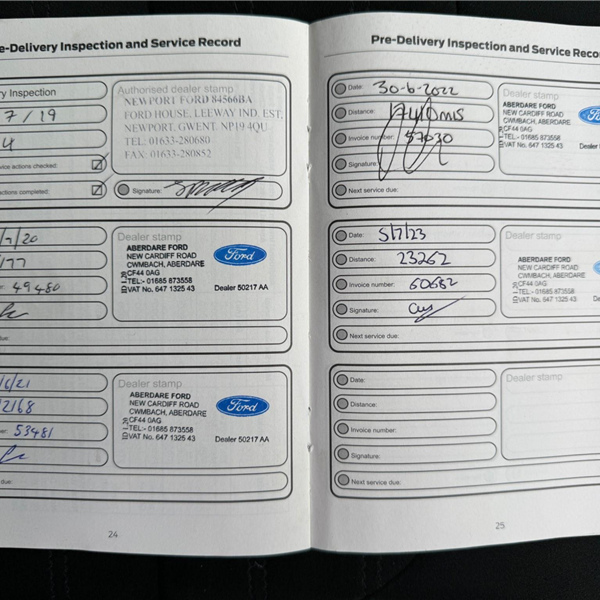 e-Delivery Inspection and Service Record
ry Inspection
7/19
4
vice actions checked:
actions completed:
Authorised dealer stamp
NEWPORT FORD 84566BA
FORD HOUSE, LEEWAY IND. EST,
NEWPORT, GWENT. NP19 4QU
TEL: 01633-280680
FAX: 01633-280852
Signature:
/7/20
177
49480
due:
Dealer stamp
ABERDARE FORD
NEW CARDIFF ROAD
CWMBACH, ABERDARE
CF44 0AG
TEL:- 01685 873558
VAT No. 647 1325 43
Ford
Dealer 50217 AA
/6/21
2168
53481
due:
Dealer stamp
ABERDARE FORD
NEW CARDIFF ROAD
CWMBACH, ABERDARE
CF44 0AG
TEL:- 01685 873558
VAT No. 647 1325 43
Ford
Dealer 50217 AA
24
Pre-Delivery Inspection and Service Reco
Date: 30-6-2022
Distance:
Invoice number: 57030
Signature:
Next service due:
Dealer stamp
ABERDARE FORD
NEW CARDIFF ROAD
CWMBACH, ABERDARE
CF44 0AG
TEL:- 01685 873558
VAT No. 647 1325 43
Dealer
Date: 5/7/23
Distance: 23262
Invoice number: 60682
Signature:
Next service due:
Dealer stamp
ABERDARE FORD
NEW CARDIFF ROAD
CWMBACH, ABERDARE
CF44 0AG
TEL:- 01685 873558
VAT No. 647 1325 43
Date:
Distance:
Invoice number:
Signature:
Next service due:
Dealer stamp
25